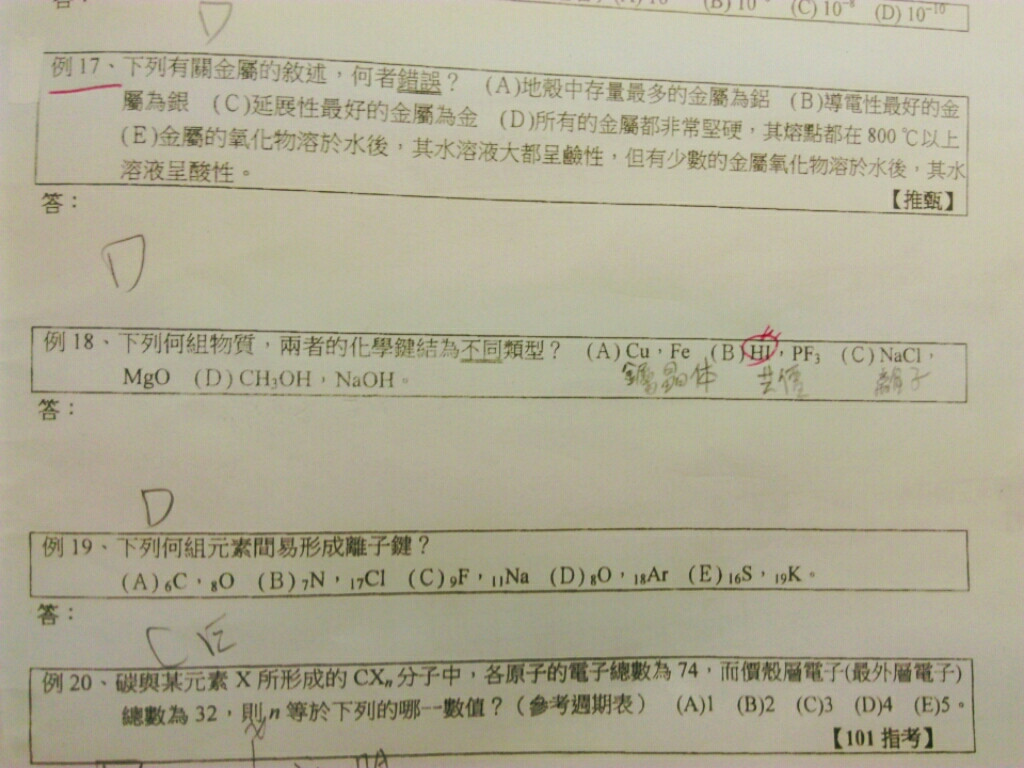 答：
(B) 10 (C) 10⁻⁸ (D) 10⁻¹⁰
D
例 17、下列有關金屬的敘述，何者錯誤？ (A)地殼中存量最多的金屬為鋁 (B)導電性最好的金
屬為銀 (C)延展性最好的金屬為金 (D)所有的金屬都非常堅硬，其熔點都在 800 ℃以上
(E)金屬的氧化物溶於水後，其水溶液大都呈鹼性，但有少數的金屬氧化物溶於水後，其水
溶液呈酸性。
【推甄】
答：
D
例 18、下列何組物質，兩者的化學鍵結為不同類型？ (A) Cu，Fe (B) HI，PF₃ (C) NaCl，
MgO (D) CH₃OH，NaOH。
金屬晶体 共價 離子
答：
D
例 19、下列何組元素間易形成離子鍵？
(A) ₆C，₈O (B) ₇N，₁₇Cl (C) ₉F，₁₁Na (D) ₈O，₁₈Ar (E) ₁₆S，₁₉K。
答：
CE
例 20、碳與某元素 X 所形成的 CXₙ 分子中，各原子的電子總數為 74，而價殼層電子(最外層電子)
總數為 32，則 n 等於下列的哪一數值？（參考週期表） (A)1 (B)2 (C)3 (D)4 (E)5。
【101 指考】